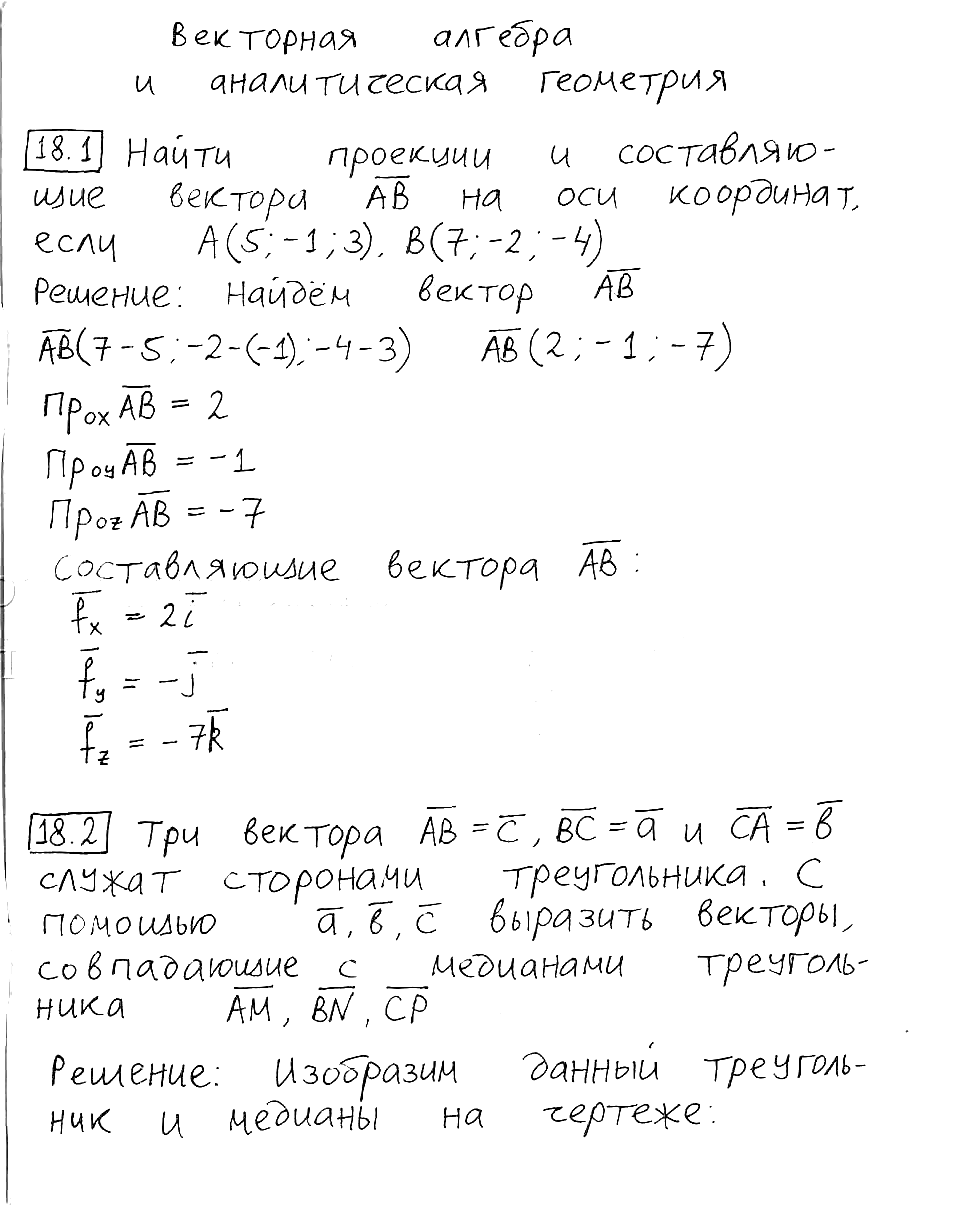 Векторная алгебра
и аналитическая геометрия
18.1 Найти проекции и составляю-
щие вектора A̅B̅ на оси координат,
если A(5; -1; 3), B(7; -2; -4)
Решение: Найдём вектор A̅B̅
A̅B̅(7-5; -2-(-1); -4-3) A̅B̅(2; -1; -7)
Пр_ox A̅B̅ = 2
Пр_oy A̅B̅ = -1
Пр_oz A̅B̅ = -7
Составляющие вектора A̅B̅:
f̅_x = 2i̅
f̅_y = -j̅
f̅_z = -7k̅
18.2 Три вектора A̅B̅ = c̅, B̅C̅ = a̅ и C̅A̅ = в̅
служат сторонами треугольника. С
помощью a̅, в̅, c̅ выразить векторы,
совпадающие с медианами треуголь-
ника A̅M̅, B̅N̅, C̅P̅
Решение: Изобразим данный треуголь-
ник и медианы на чертеже: